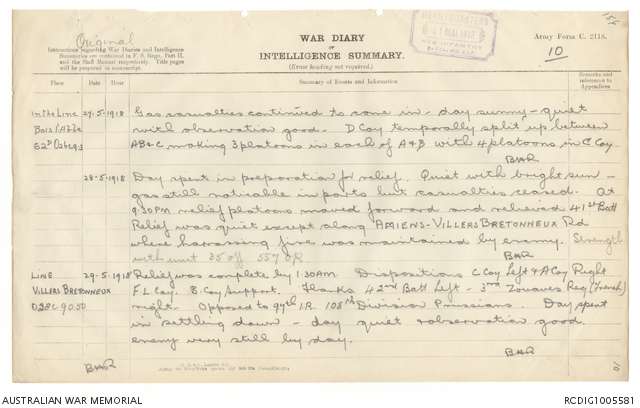 Original
Instructions regarding War Diaries and Intelligence
Summaries are contained in F. S. Regs., Part II.
and the Staff Manual respectively. Title pages
will be prepared in manuscript.
WAR DIARY
OR
INTELLIGENCE SUMMARY.
(Erase heading not required.)
HEADQUARTERS
Army Form C. 2118.
10
Place
Date
Hour
Summary of Events and Information
Remarks and
references to
Appendices
In the Line 27-5-1918 Gas casualties continued to come in - day sunny - quiet
Bois l'Abbe with observation good. D Coy temporally split up between
62D AB & C making 3 platoons in each of A & B with 4 platoons in C Coy
BHR
28-5-1918 Day spent in preparation for relief. Quiet with bright sun -
gas still noticable in parts but casualties ceased. At
9.30PM relief platoons moved forward and relieved 41st Batt
Relief was quiet except along AMIENS-VILLERS BRETONNEUX Rd
where harassing fire was maintained by enemy. Strength
with unit 35 off 557 OR BHR
LINE 29-5-1918 Relief was complete by 1.30AM. Dispositions C Coy Left & A Coy Right
VILLERS BRETONNEUX F L Coy. B Coy Support. Flanks 42nd Batt Left - 3rd Zouaves Reg (French)
O28C 9050 right. Opposed to 97th I.R. 108th Division Prussians. Day spent
in settling down - day quiet & observation good.
enemy very still by day.
BHR
BHR
AUSTRALIAN WAR MEMORIAL
RCDIG1005581